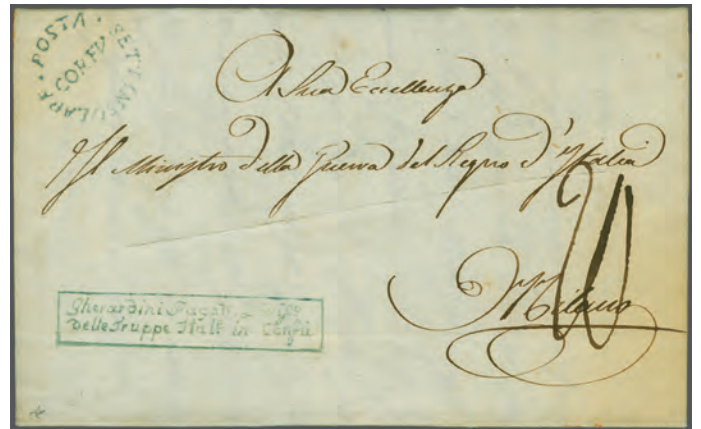 POSTA SETTINSULARE
CORFU
A Sua Eccellenza
Il Ministro della Guerra del Regno d'Italia
Milano
Gherardini
delle Truppe Itale in Corfù